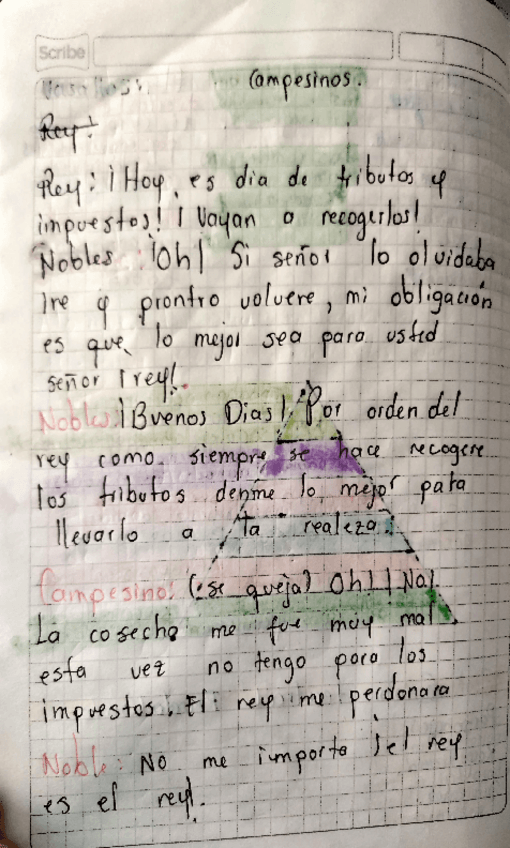 Scribe
Vasallos: Campesinos.
Rey:
Rey: ¡Hoy, es dia de tributos y
impuestos! ¡Vayan a recogerlos!
Nobles: ¡Oh! Si señor lo olvidaba
Ire y prontro volvere, mi obligación
es que lo mejor sea para usted
señor ¡rey!.
Nobles: ¡Buenos Dias! Por orden del
rey como siempre se hace recogere
los tributos denme lo mejor para
llevarlo a la realeza.
Campesino: (se queja) Oh! ¡No!
La cosecha me fue muy mal
esta vez no tengo para los
impuestos. El rey me perdonara
Noble: No me importa ¡el rey
es el rey!.